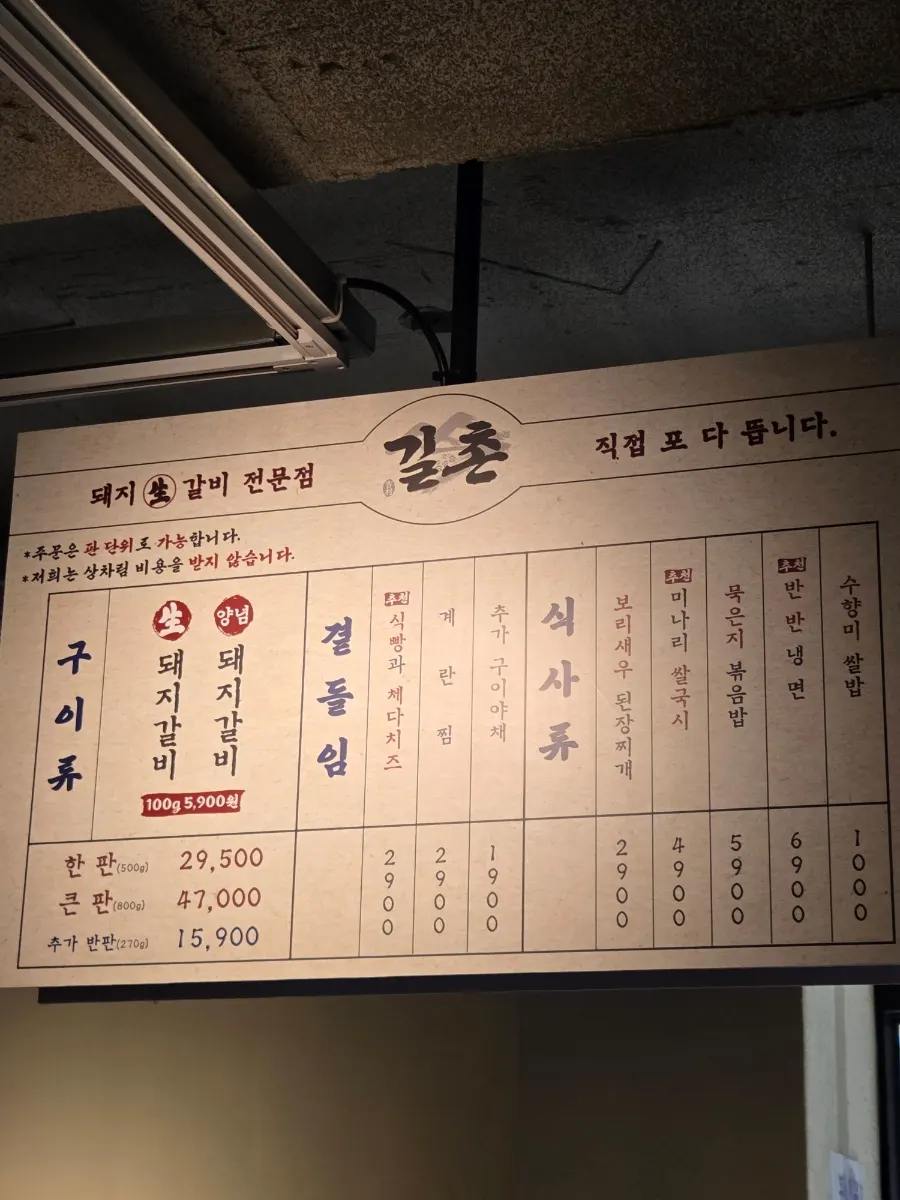 돼지 生 갈비 전문점
길촌
직접 포 다 뜹니다.
*주문은 판 단위로 가능합니다.
*저희는 상차림 비용을 받지 않습니다.
구이류
生 돼지갈비
양념 돼지갈비
100g 5,900원
한 판(500g) 29,500
큰 판(800g) 47,000
추가 반판(270g) 15,900
곁들임
추천 식빵과 체다치즈 2900
계란찜 2900
추가 구이야채 1900
식사류
보리새우 된장찌개 2900
추천 미나리 쌀국시 4900
묵은지 볶음밥 5900
추천 반반냉면 6900
수향미 쌀밥 1000